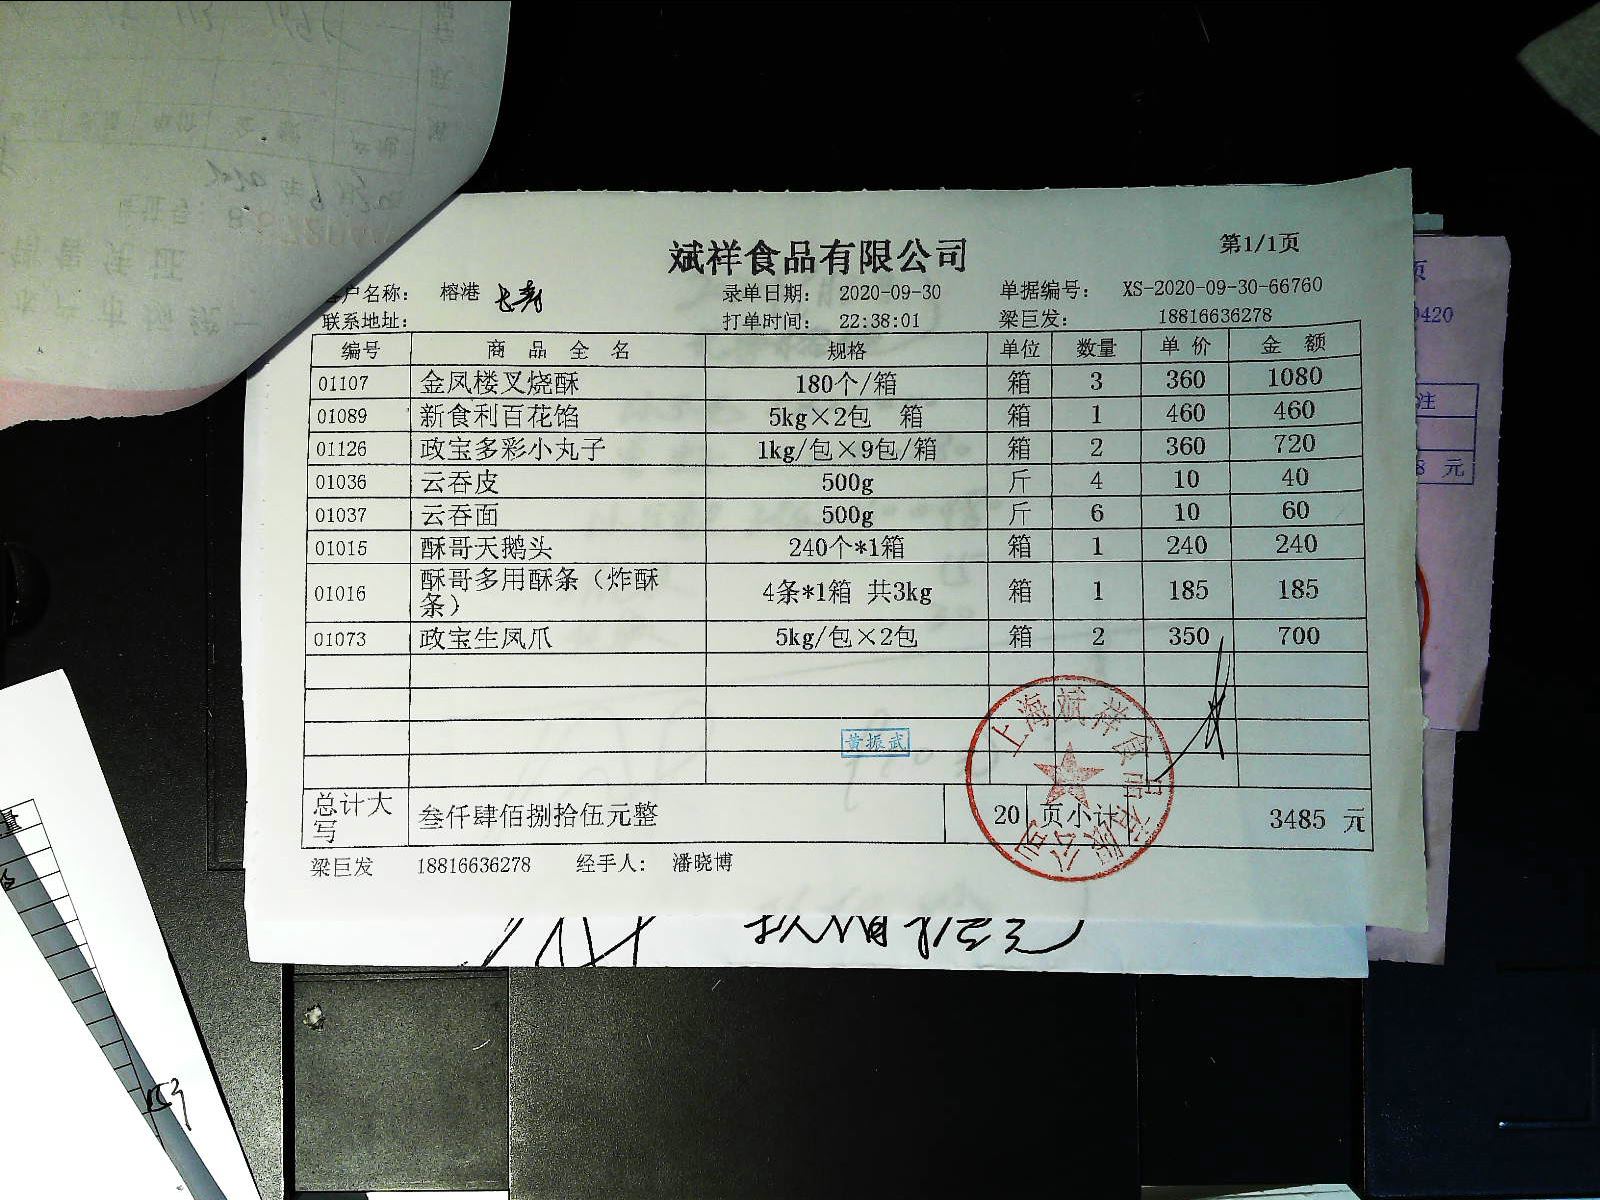 斌祥食品有限公司
第1/1页
客户名称： 榕港
录单日期： 2020-09-30
单据编号： XS-2020-09-30-66760
联系地址：
打单时间： 22:38:01
梁巨发： 18816636278
编号 商品全名 规格 单位 数量 单价 金额
01107 金凤楼叉烧酥 180个/箱 箱 3 360 1080
01089 新食利百花馅 5kg×2包 箱 箱 1 460 460
01126 政宝多彩小丸子 1kg/包×9包/箱 箱 2 360 720
01036 云吞皮 500g 斤 4 10 40
01037 云吞面 500g 斤 6 10 60
01015 酥哥天鹅头 240个*1箱 箱 1 240 240
01016 酥哥多用酥条（炸酥
条） 4条*1箱 共3kg 箱 1 185 185
01073 政宝生凤爪 5kg/包×2包 箱 2 350 700
黄振武
上海斌祥食品有限公司
总计大
写 叁仟肆佰捌拾伍元整 20 页小计 3485 元
梁巨发 18816636278 经手人： 潘晓博
页
0420
注
8 元
量